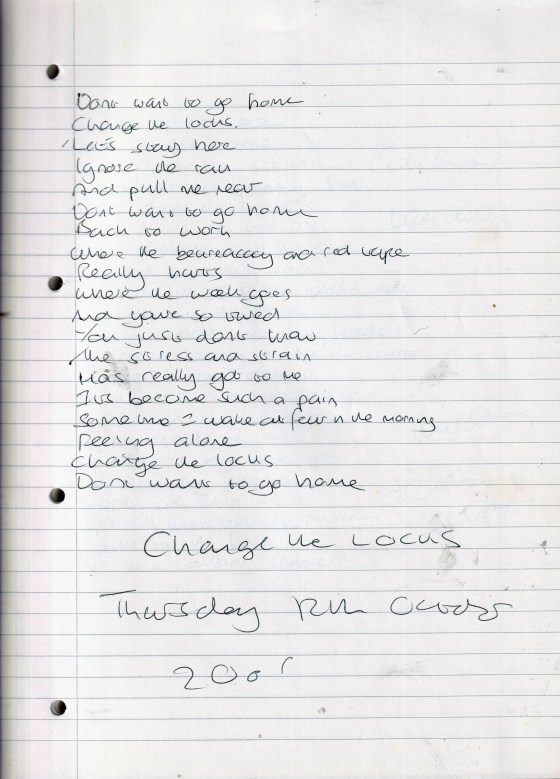 Dont want to go home
Change the locks.
Let's stay here
Ignore the rain
And pull me near
Dont want to go home
Back to work
Where the beureaccacy and red tape
Really hurts
Where the week goes
And you're so tired
You just dont know
The stress and strain
Has really got to me
Its become such a pain
Sometime I wake at four in the morning
Feeling alone
Change the locks
Dont want to go home
Change the Locks
Thursday 12th October
200